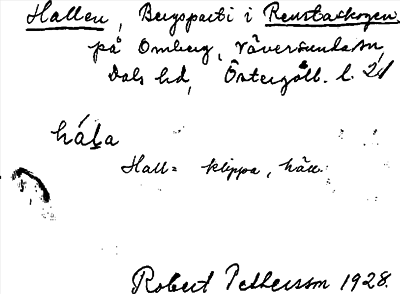 Hallen, Bergsparti i Renstaskogen
på Omberg, Väversunda sn,
Dals hd, Östergötl. l.
hála
Hall = klippa, häll
Robert Pettersson 1928.